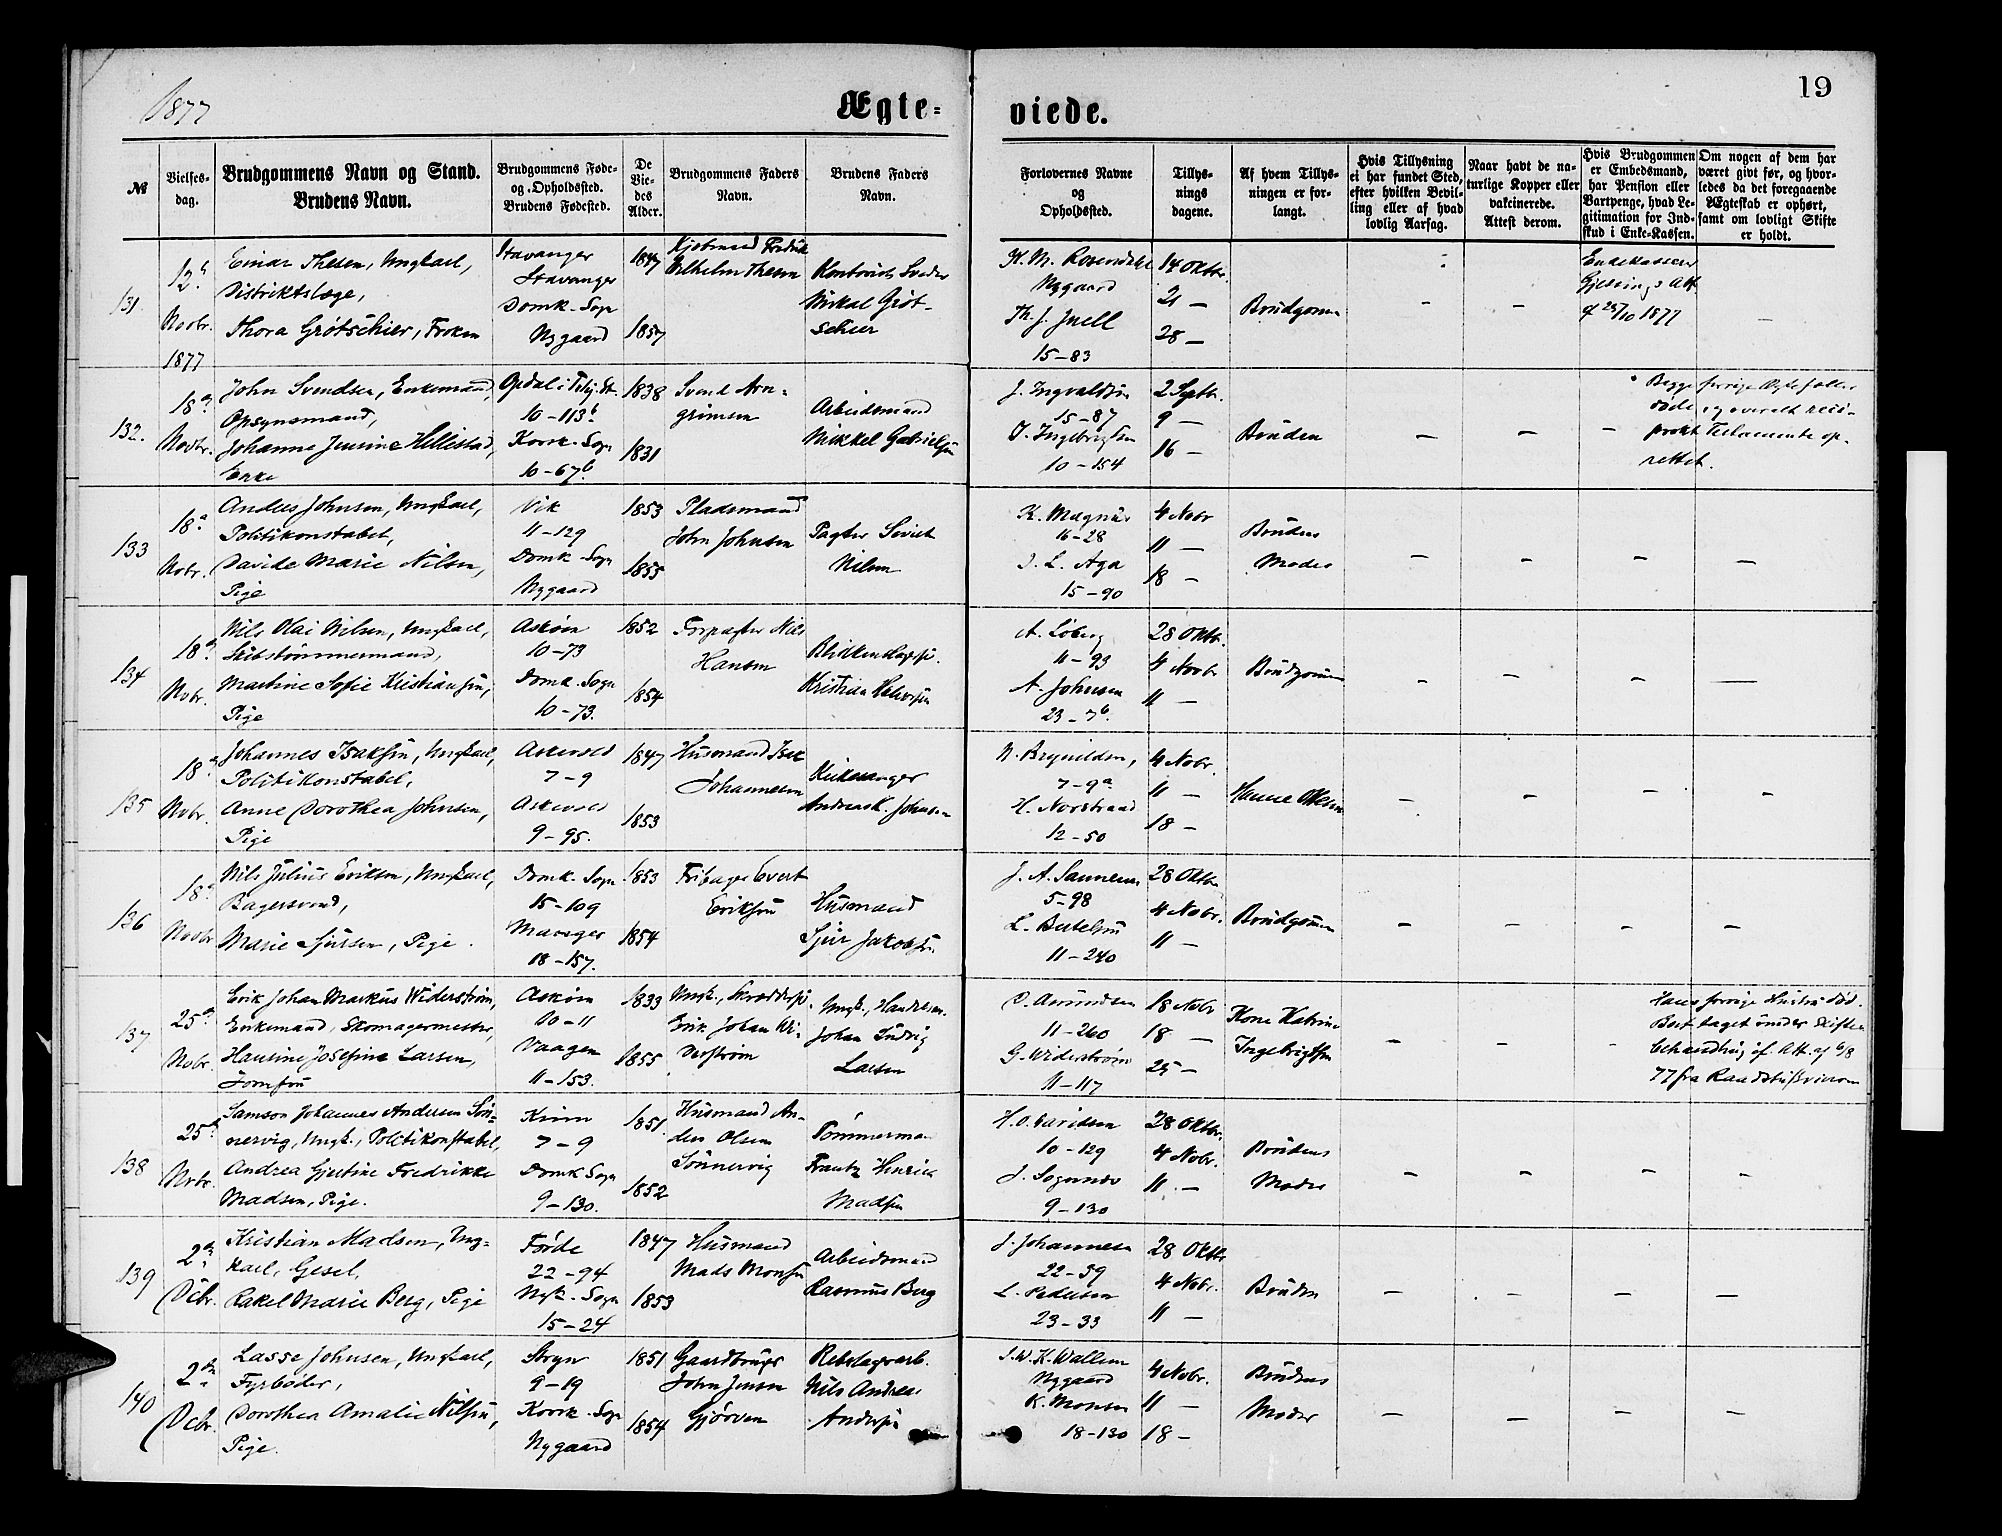 1877
Ægte-
viede.
19
№
Vielses-
dag.
Brudgommens Navn og Stand.
Brudens Navn.
Brudgommens Føde-
og Opholdssted.
Brudens Fødested.
De
Vie-
des
Alder.
Brudgommens Faders
Navn.
Brudens Faders
Navn.
Forlovernes Navne
og
Opholdssted.
Tillys-
nings
dagene.
Af hvem Tillys-
ningen er for-
langt.
Hvis Tillysning
ei har fundet Sted,
efter hvilken Bevil-
ling eller af hvad
lovlig Aarsag.
Naar havt de na-
turlige Kopper eller
vakcinerede.
Attest derom.
Hvis Brudgommen
er Embedsmand,
har Pension eller
Vartpenge, hvad Le-
gitimation for Ind-
skud i Enke-Kassen.
Om nogen af dem har
været givt før, og hvor-
ledes da det foregaaende
Ægteskab er ophørt,
samt om lovligt Skifte
er holdt.
131.
12
Novbr.
1877
Einar Thesen, Ungkarl,
Distriktslæge,
Thora Grótschier, Frøken
Stavanger
Stavanger
Domk. Sogn
Nygaard
1847
1857
Kjøbmand Fredrik
Vilhelm Thesen
Mikal Gröt-
schier
Nygaard
Th. J. Juell
15-83
14 Oktbr.
21 —
28 —
Brudgom
1877
132.
18
Novbr.
John Svendsen, Enkemand,
Opsynsmand,
Johanne Jensine Hillestad,
Enke
10-113b
Korsk. Sogn
10-67b
1838
1831
Svend Arn-
grimsen
Arbeidsmand
Mikkel Gabrielsen
J. Ingvaldsen
15-87
J. Ingebrigtsen
10-154
2 Septbr.
9 —
16 —
Bruden
Begge forrige Ægtefæller
døde og overalt reci-
prokt Testamente op-
rettet.
133
18
Nobr.
Anders Johnsen, Ungkarl,
Politikonstabel,
Davide Marie Nilsen,
Pige
Vik
11-129
Domk. Sogn
Nygaard
1853
1855
Pladsmand
John Johnsen
Pagter Sivert
Nilsen
K. Magnus
16-28
J. L. Aga
15-90
4 Nobr
11 —
18 —
Brudens
Moder
134
18
Nobr.
Nils Olai Nilsen, Ungkarl,
Skibstømmermand,
Martine Sofie Kristiansen,
Pige
Askøen
10-73
Domk. Sogn
10-73.
1852
1854
Forpagter Nils
Hansen
Kristian Halvorsen
A. Løberg
11-93
A. Johnsen
23-7b.
28 Oktbr.
4 Novbr
11 —
Brudgommen
135
18
Nobr.
Johannes Isaksen, Ungkarl,
Politikonstabel,
Anne Dorothea Johnsen,
Pige
Askevold
7-9
Askevold
9-95.
1847
1853
Husmand Isak
Johannesen
Kirkesanger
Andreas K. Johnsen
N. Brynildsen,
7-9a
H. Norstrand
12-50
4 Nobr.
11 —
18 —
Hanne Olsen
136
18
Novbr
Nils Julius Eriksen, Ungkarl,
Bagersvend,
Marie Sjursen, Pige.
Domk. Sogn
15-109
Manger
18-157.
1853
1854
Fribager Evert
Eriksen
Husmand
Sjur Jakobsen.
J. A. Sannesen
5-98
L. Bertelsen
11-240
28 Oktbr
4 Nobr.
11 —
Brudgommen
137
25
Nobr.
Erik Johan Markus Widerstrøm,
Enkemand, Skomagermester,
Hansine Josefine Larsen,
Jomfru
Askøen
10-11
Vaagen
11-153.
1833
1855
Erik Johan Wi-
derstrøm
Johan Ludvig
Larsen
O. Amundsen
11-260
G. Widerstrøm
11-117
18 Nobr
18 —
25 —
Kone Katrine
Ingebrigtsen
Hans forrige Hustru død.
Boet taget under Skifte-
behandling cf. Att. af 6/8
77 fra Raadstuskriveren
138
25
Nobr.
Samson Johannes Andersen Søn-
nervig, Ungk., Politikonstabel,
Andrea Gjertine Fredrikke
Madsen, Pige.
Kinn
7-9
Domk. Sogn
9-130.
1851
1852
Husmand An-
ders Olsen
Sønnervig
Tømmermand
Frantz Henrik
Madsen
H. O. Davidsen
10-129
J. Sogndal
9-130
28 Oktbr.
4 Nobr.
11 —
Brudens
Moder
139
2
Dcbr.
Kristian Madsen, Ung-
karl, Gesel,
Rakel Marie Berg, Pige
Førde
22-94
Nyk. Sogn
15-24
1847
1853
Husmand
Mads Monsen
Arbeidsmand
Rasmus Berg
J. Johannesen
22-59
L. Pedersen
23-33
28 Oktbr
4 Nobr.
11 —
Bruden
140
2
Dcbr.
Lasse Johnsen, Ungkarl,
Fyrbøder,
Dorothea Amalie Nilsen,
Pige.
Stryn
9-19
Korsk. Sogn
Nygaard
1851
1854
Gaardbruger
John Jensen
Gjörven
Rebslagerarb.
Nils Andreas
Andersen
J. W. K. Wallem
Nygaard
K. Monsen
18-130
4 Nobr.
11 —
18 —
Brudens
Moder